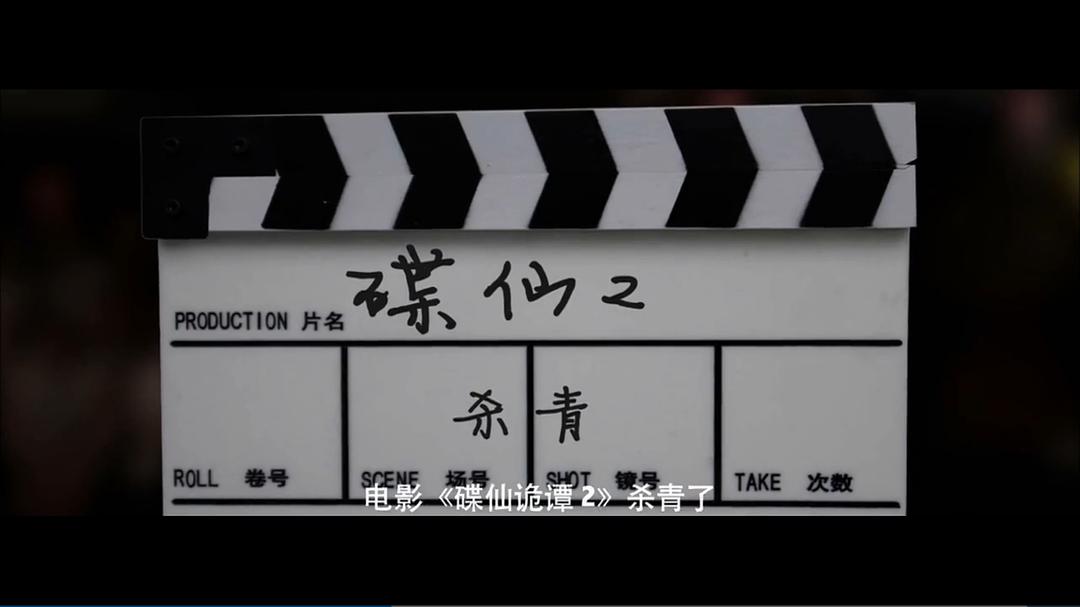 PRODUCTION 片名 碟仙2
杀青
ROLL 卷号 SCENE 场号 SHOT 镜号 TAKE 次数
电影《碟仙诡谭2》杀青了